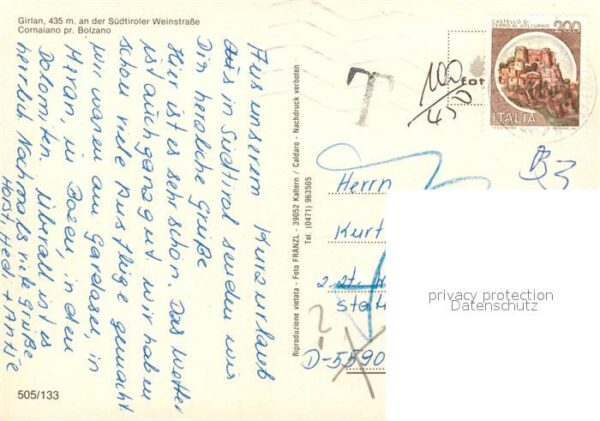 Girlan, 435 m. an der Südtiroler Weinstraße
Cornaiano pr. Bolzano
Aus unserem Kurzurlaub
aus in Südtirol senden wir
Dir herzliche Grüße
Hier ist es sehr schön. Das Wetter
ist auch ganz gut wir haben
schon viele Ausflüge gemacht
wir waren am Gardasee, in
Meran, in Bozen, in den
Dolomiten. Überall ist es
herrlich. Nochmals viele Grüße
Horst, Hedi + Antje
505/133
Riproduzione vietata - Foto FRANZL - 39052 Kaltern / Caldaro - Nachdruck verboten
Tel. (0471) 963505
T
100/450
fot
CASTELLO DI
CERRO AL VOLTURNO
200
ITALIA
B3
Herrn
Kurt
2. Zt.
Sta
D-5590
?
privacy protection
Datenschutz